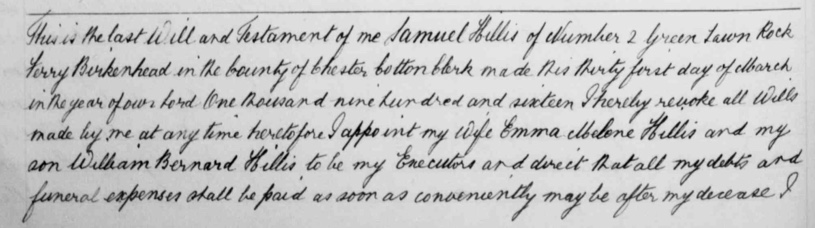 This is the last Will and Testament of me Samuel Hillis of Number 2 Green Lawn Rock
Ferry Birkenhead in the County of Chester Cotton Clerk made this thirty first day of March
in the year of our Lord One thousand nine hundred and sixteen I hereby revoke all Wills
made by me at any time heretofore I appoint my Wife Emma Melene Hillis and my
son William Bernard Hillis to be my Executors and direct that all my debts and
funeral expenses shall be paid as soon as conveniently may be after my decease I